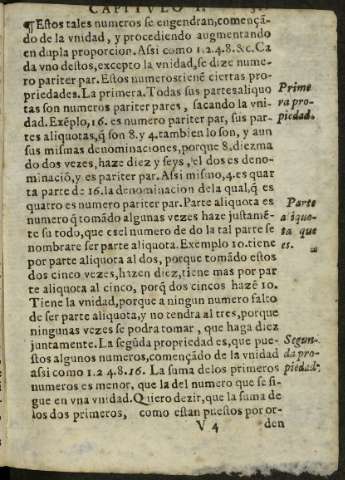 CAPITVLO I.
¶ Estos tales numeros se engendran, comẽçã-
do de la vnidad, y procediendo augmentando
en dupla proporcion. Assi como 1.2.4.8.&c. Ca
da vno destos, excepto la vnidad, se dize nume-
ro pariter par. Estos numeros tienẽ ciertas pro-
priedades. La primera. Todas sus partes aliquo
tas son numeros pariter pares, sacando la vni-
dad. Exẽplo, 16. es numero pariter par, sus par-
tes aliquotas, q̃ son 8. y 4. tambien lo son, y aun
sus mismas denominaciones, porque 8. diezma
do dos vezes, haze diez y seys, el dos es deno-
minaciõ, y es pariter par. Assi mismo, 4. es quar
ta parte de 16. la denominacion de la qual, q̃ es
quatro es numero pariter par. Parte aliquota es
numero q̃ tomãdo algunas vezes haze justamẽ-
te su todo, que es el numero de do la tal parte se
nombrare ser parte aliquota. Exemplo 10. tiene
por parte aliquota al dos, porque tomãdo estos
dos cinco vezes, hazen diez, tiene mas por par
te aliquota al cinco, porq̃ dos cincos hazẽ 10.
Tiene la vnidad, porque a ningun numero falto
de ser parte aliquota, y no tendra al tres, porque
ningunas vezes se podra tomar, que haga diez
juntamente. La segũda propriedad es, que pue-
stos algunos numeros, comẽçãdo de la vnidad
assi como 1.2 4.8.16. La suma de los primeros
numeros es menor, que la del numero que se si-
gue en vna vnidad. Quiero dezir, que la suma de
los dos primeros, como estan puestos por or-
V 4 den
Prime
ra pro-
piedad.
Parte
a iquo-
ta que
es.
Segun-
da pro-
piedad.